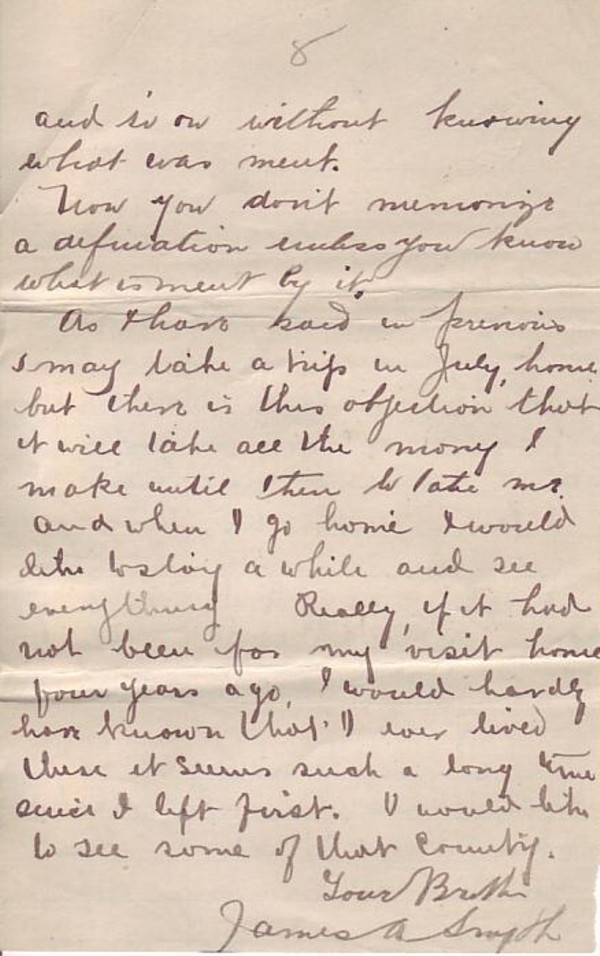 8
and so on without knowing
what was ment.
Now you don't memorize
a defination unless you know
what is ment by it.
As I have said in previous
I may take a trip in July, home
but there is this objection that
it will take all the mony I
make until then to take me.
and when I go home I would
like to stay a while and see
everything Really, if it had
not been for my visit home
four years ago, I would hardly
have known that I ever lived
there it seems such a long time
since I left first. I would like
to see some of that County.
Your Brother
James A Smyth